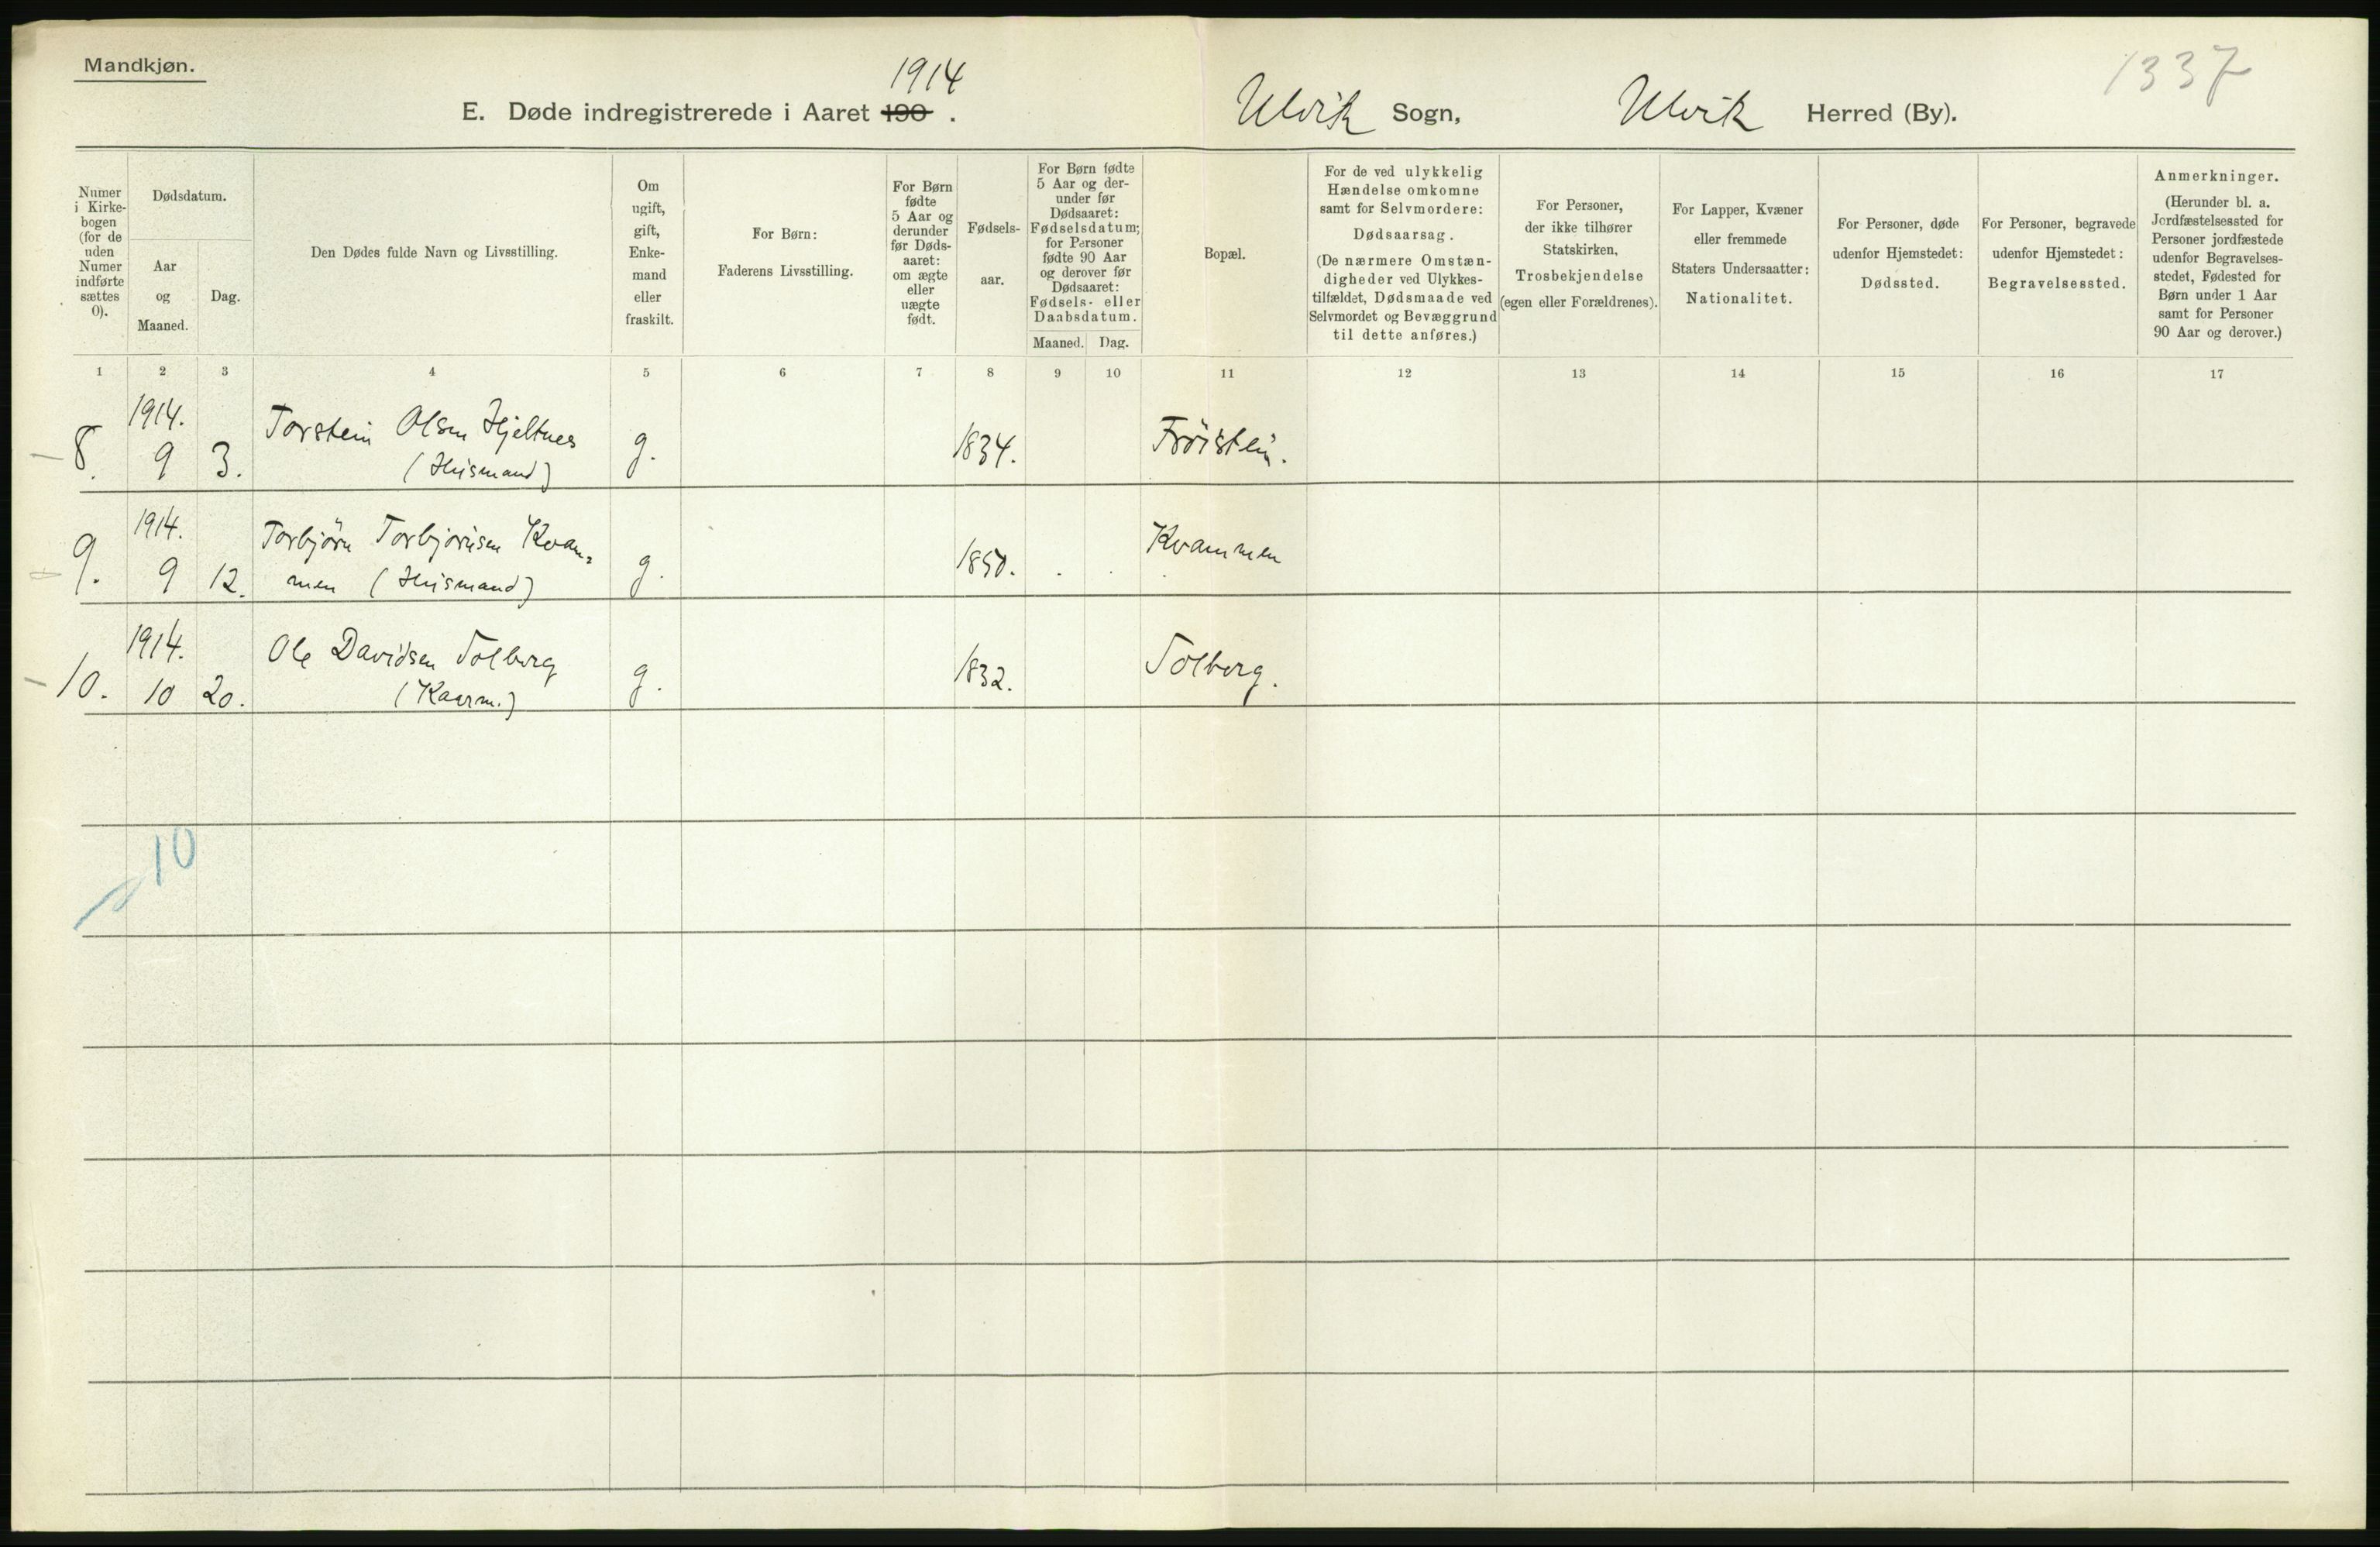 Mandkjøn.
1337
1914
E. Døde indregistrerede i Aaret 190 . Ulvik Sogn, Ulvik Herred (By).
Numer
i Kirke-
bogen
(for de
uden
Numer
indførte
sættes
0).
Dødsdatum.
Aar
og
Maaned.
Dag.
Den Dødes fulde Navn og Livsstilling.
Om
ugift,
gift,
Enke-
mand
eller
fraskilt.
For Børn:
Faderens Livsstilling.
For Børn
fødte
5 Aar og
derunder
før Døds-
aaret:
om ægte
eller
uægte
født.
Fødsels-
aar.
For Børn fødte
5 Aar og der-
under før
Dødsaaret:
Fødselsdatum;
for Personer
fødte 90 Aar
og derover før
Dødsaaret:
Fødsels- eller
Daabsdatum.
Maaned. Dag.
Bopæl.
For de ved ulykkelig
Hændelse omkomne
samt for Selvmordere:
Dødsaarsag.
(De nærmere Omstæn-
digheder ved Ulykkes-
tilfældet, Dødsmaade ved
Selvmordet og Bevæggrund
til dette anføres.)
For Personer,
der ikke tilhører
Statskirken,
Trosbekjendelse
(egen eller Forældrenes).
For Lapper, Kvæner
eller fremmede
Staters Undersaatter:
Nationalitet.
For Personer, døde
udenfor Hjemstedet:
Dødssted.
For Personer, begravede
udenfor Hjemstedet:
Begravelsessted.
Anmerkninger.
(Herunder bl. a.
Jordfæstelsessted for
Personer jordfæstede
udenfor Begravelses-
stedet, Fødested for
Børn under 1 Aar
samt for Personer
90 Aar og derover.)
1 2 3 4 5 6 7 8 9 10 11 12 13 14 15 16 17
1914.
8. 9 3. Torstein Olsen Hjeltnes g. 1834. Tröistein.
(Husmand)
1914.
9. 9 12. Torbjörn Torbjörnsen Kvam= g. 1850. Kvammen
men (Husmand)
1914.
10. 10 20. Ole Davidsen Solberg g. 1832. Solberg.
(Kaarm.)
10